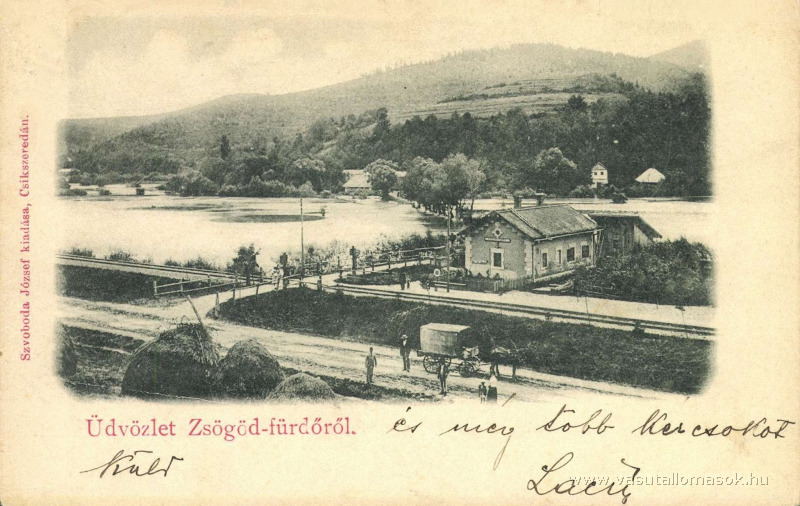 Szvoboda József kiadása, Csikszeredán.
Üdvözlet Zsögöd-fürdőről. és még több Kercsokot
Küld
Laciy
www.vasutallomasok.hu